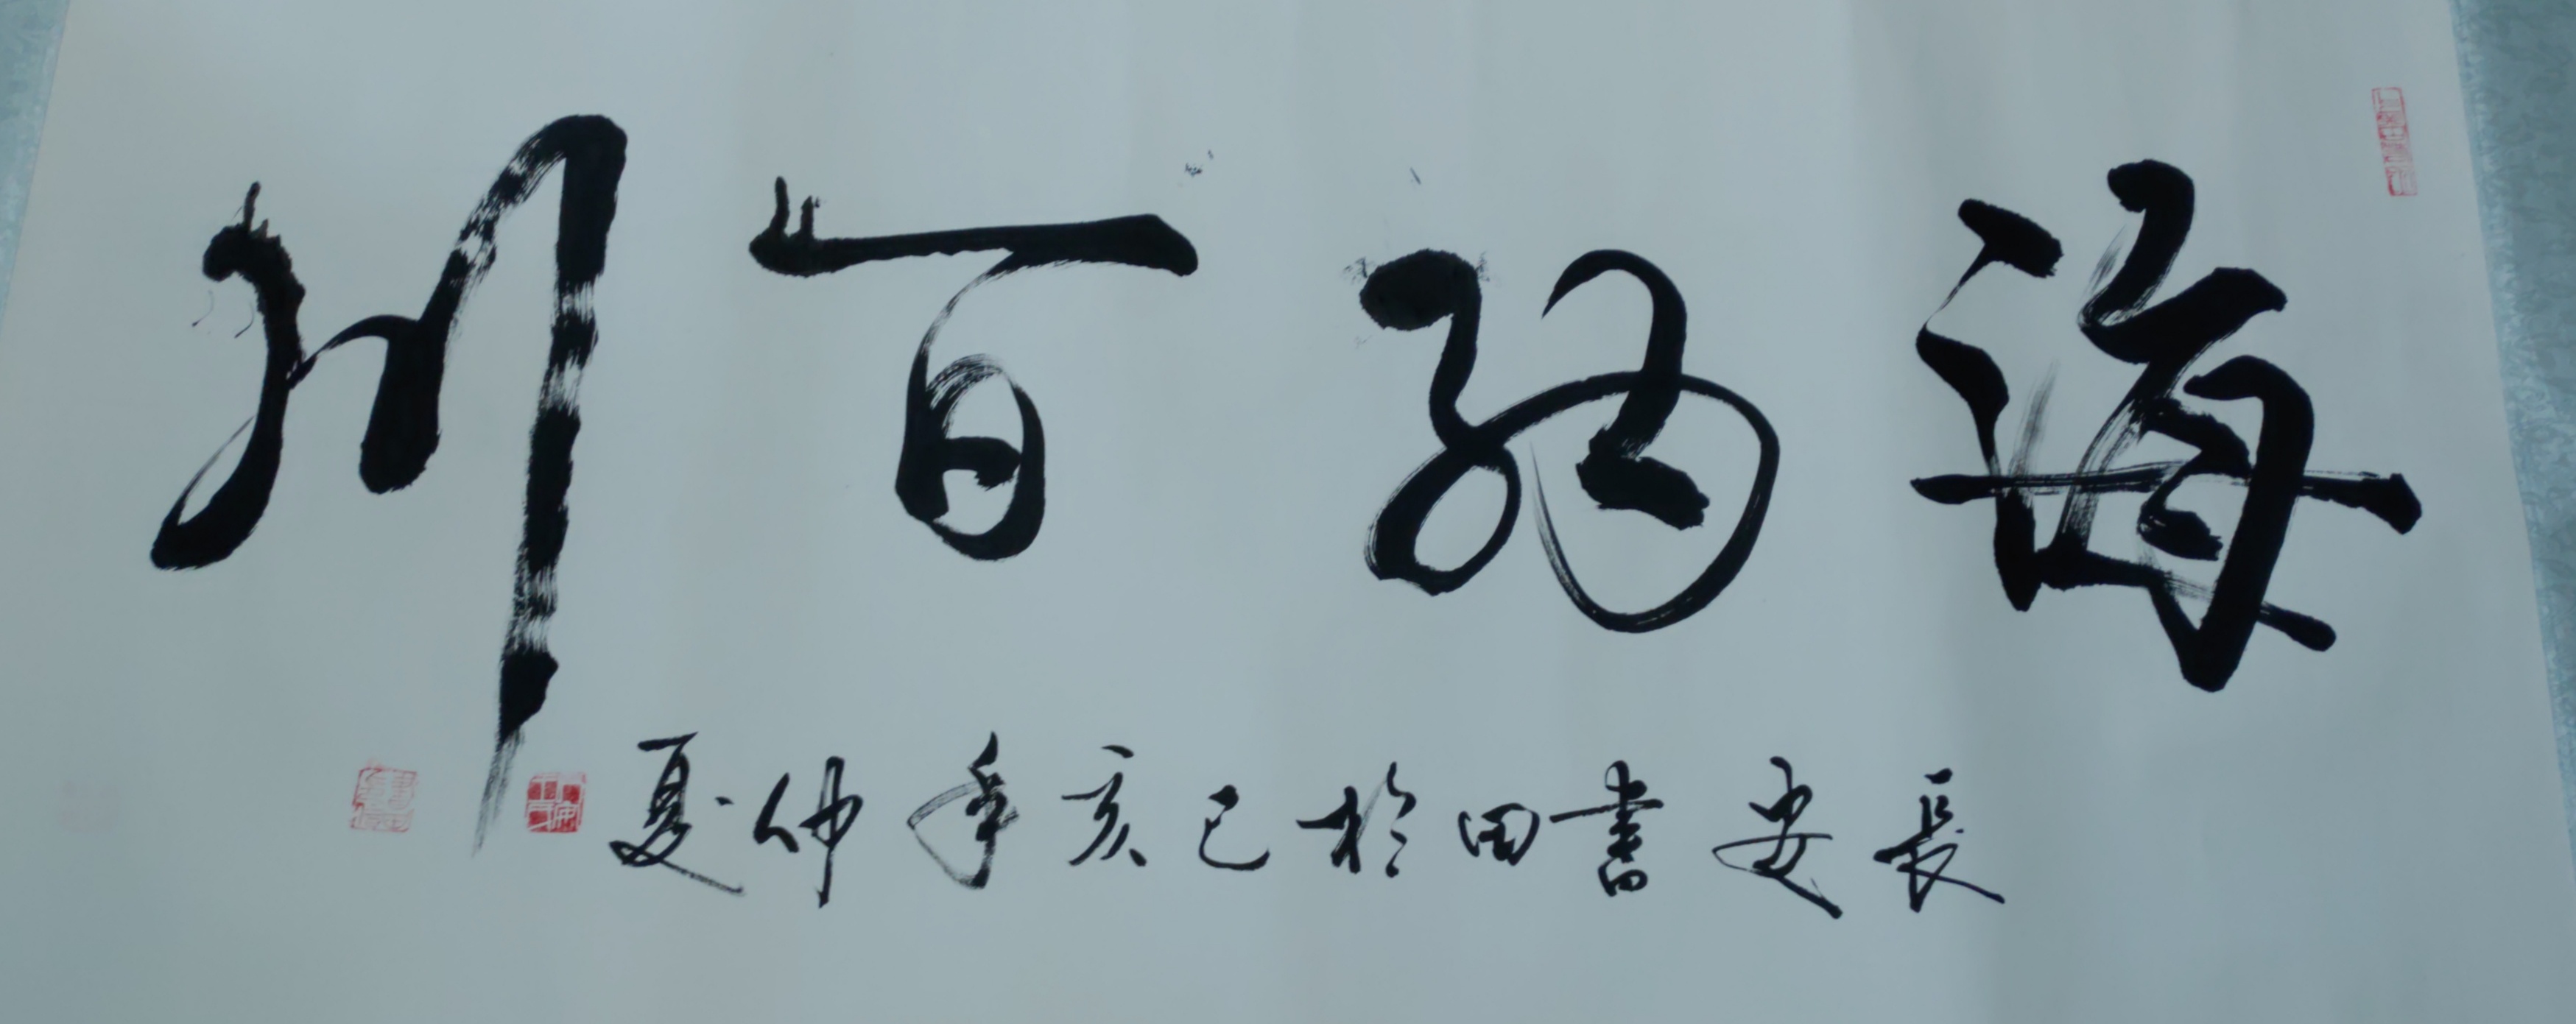 海纳百川
長安書田於己亥年仲夏